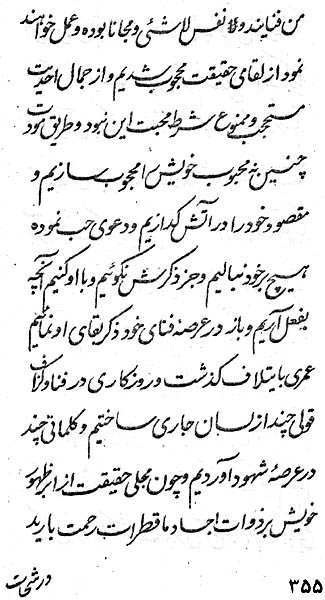 من فنایند و لا نفس لاشئی و مجانا بوده و عمل خواهند
نمود از لقای حقیقت محجوب شدیم و از جمال احدیت
محتجب و ممنوع شرط محبت این نبود و طریق مودت
چنین نه محبوب خویش را محجوب سازیم و
مقصود خود را در آتش گدازیم و دعوی حب نموده
هیچ بر خود نبالیم و جز ذکرش نگوئیم و با او کنیم آنچه
بفعل آریم و باز در عرصهٔ فنای خود ذکر بقای او نمائیم
عمری باتلاف گذشت و روزگاری در فنا و گزاف
قولی چند از لسان جاری ساختیم و کلماتی چند
در عرصهٔ شهود آوردیم و چون مجلی حقیقت از ابر ظهور
خویش بر ذوات اجساد ما قطرات رحمت بارید
۳۵۵